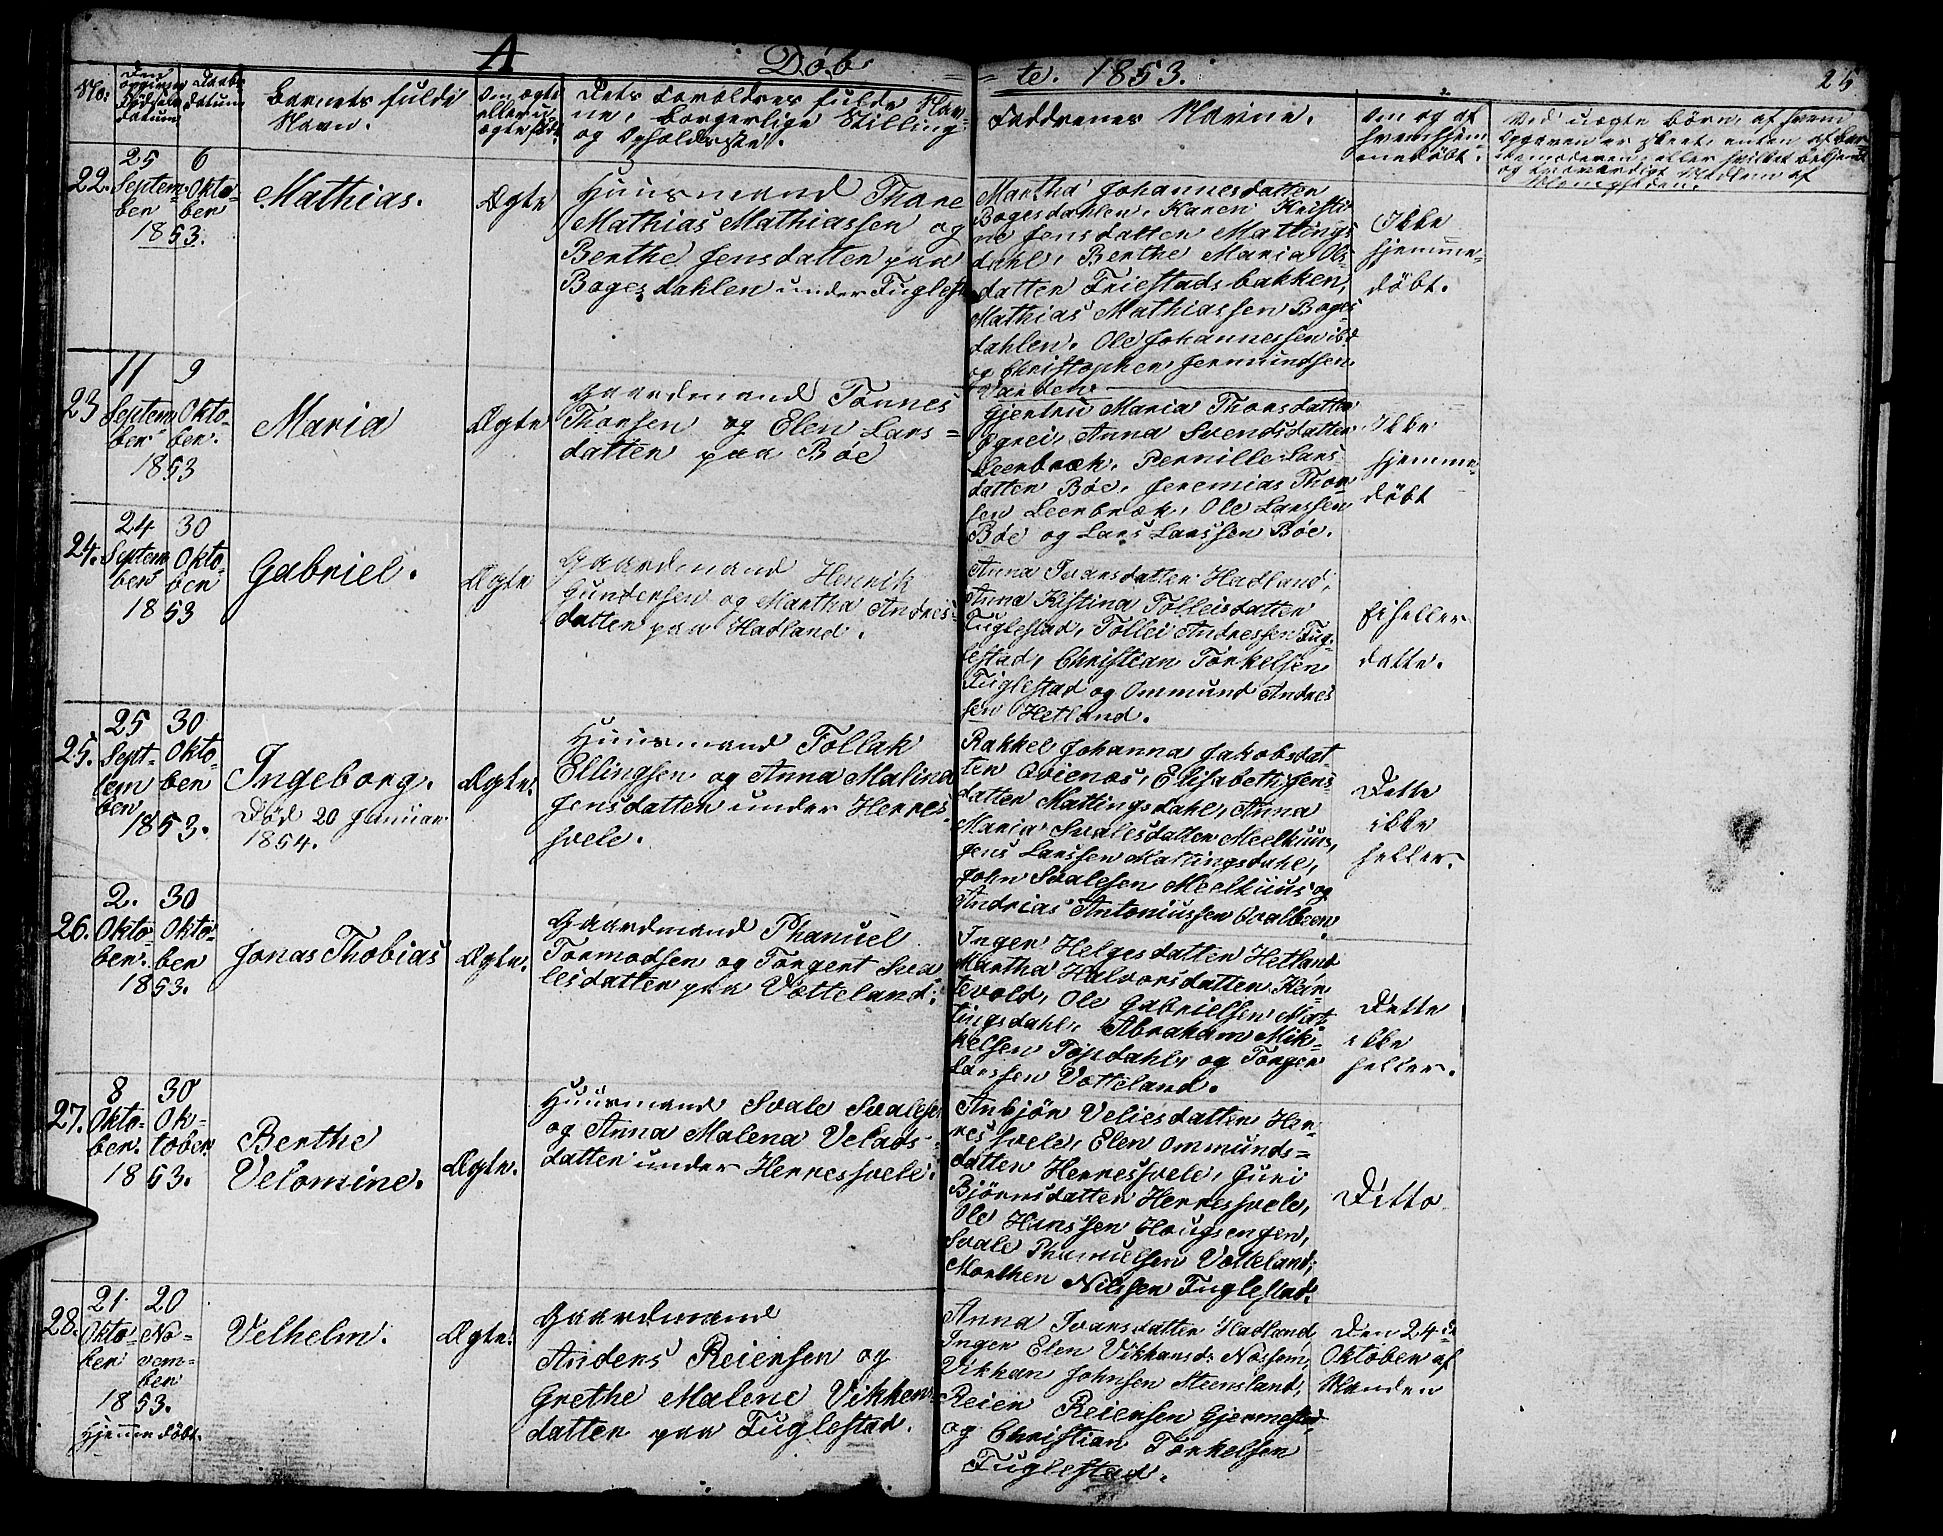 A Døb- te. 1853. 25
No. Den opgivne Fødsels datum Daabs datum Barnets fulde Navn. Om ægte eller u- ægte født. Dets Forældres fulde Nav- ne, borgerlige Stilling og Opholdssted. Faddrenes Navne. Om og af hvem hjem- medøbt. Ved uægte Børn, af hvem Opgaven er skeet, enten af Bar- nemoderen, eller hvilket bekjendt og troværdigt Medlem af Menigheden.
22.
25 Septem- ber
6 Okto- ber
1853.
Mathias.
Ægte
Huusmand Thore
Mathias Mathiassen og
Berthe Jensdatten paa
Bogesdahlen under Fuglest
Martha Johannesdatten
Bogesdahlen, Karen Kristi-
ne Jensdatten Mattings-
dahl, Berthe Maria Ols-
datten Friestadsbakken,
Mathias Mathiassen Boges-
dahlen. Ole Johannessen ibd
og Christopher Jermundsen
Varden.
Ikke
hjemme-
døbt.
23
11 Septem- ber
9 Okto- ber.
1853
Maria
Ægte
Gaardmand Tønnes
Thorsen og Elen Lars-
datten paa Bøe
Gjertru Maria Thorsdatten
Egrei, Anna Svendsdatten
Leerbræk, Pernille Lars-
datten Bøe, Jeremias Thor-
sen Leerbræk, Ole Larssen
Bøe og Lars Larssen Bøe.
Ikke
hjemme-
døbt
24.
24 Septem- ber
30 Okto- ber
1853
Gabriel.
Ægte
Gaardmand Henrik
Gundersen og Martha Andres-
datten paa Hadland.
Anna Ivarsdatten Hadland,
Anna Kistina Tolleisdatten
Fuglestad, Tollei Andressen Fug-
lestad, Christian Tørkelsen
Fuglestad og Ommund Andres-
sen Hetland.
Ei heller
dette.
25.
25 Sept- tem ber
30 Okto- ber
1853.
Ingeborg.
Død 20 Januar
1854.
Ægte.
Huusmand Tollak
Ellingsen og Anna Malina
Jensdatten under Herres-
hvele.
Rakkel Johanna Jakobsdat
ten Qvienæs, Elisabeth Jens
datten Mattingsdahl, Anna
Maria Svalesdatten Meelhuus,
Jens Larssen Mattingsdahl,
John Svalesen Meelhuus og
Andrias Antoniussen Qvalbein.
Dette
ikke
heller.
26.
2. Okto- ber.
30 Okto- ber
1853.
Jonas Thobias
Ægte.
Gaardmand Phanuel
Tormodsen og Torgert Sva
lesdatten paa Vætteland.
Inger Helgesdatten Hetland
Martha Halvorsdatten Kår-
tevold, Ole Gabrielsen Mat-
tingsdahl, Abraham Mik-
kelsen Topdahl, og Torger
Larssen Vætteland.
Dette
ikke
heller.
27.
8 Okto- ber.
30 Ok- tober
1853.
Berthe
Velomine.
Ægte.
Huusmand Svale Svalesen
og Anna Malena Velads-
datten under Herreshvele.
Anbjør Veliesdatten Her-
reshvele, Elen Ommunds-
datten Herreshvele, Guri
Bjørnsdatten Herreshvele,
Ole Hanssen Hougsengen,
Svale Phanuelsen Vætteland,
Morthen Nilssen Fuglestad.
Ditto
28.
21. Okto- ber
20 No- vem- ber
1853.
Hjemmedøbt.
Velhelm.
Ægte.
Gaardmand
Anders Reiersen og
Grethe Malene Vikhen-
datten paa Fuglestad.
Anna Ivarsdatten Hadland,
Inger Elen Vikhansd: Nossem,
Vikhan Johnsen Steensland,
Reier Reiersen Gjermestad
og Christian Tørkelsen
Fuglestad.
Den 24de
Oktober af
Manden